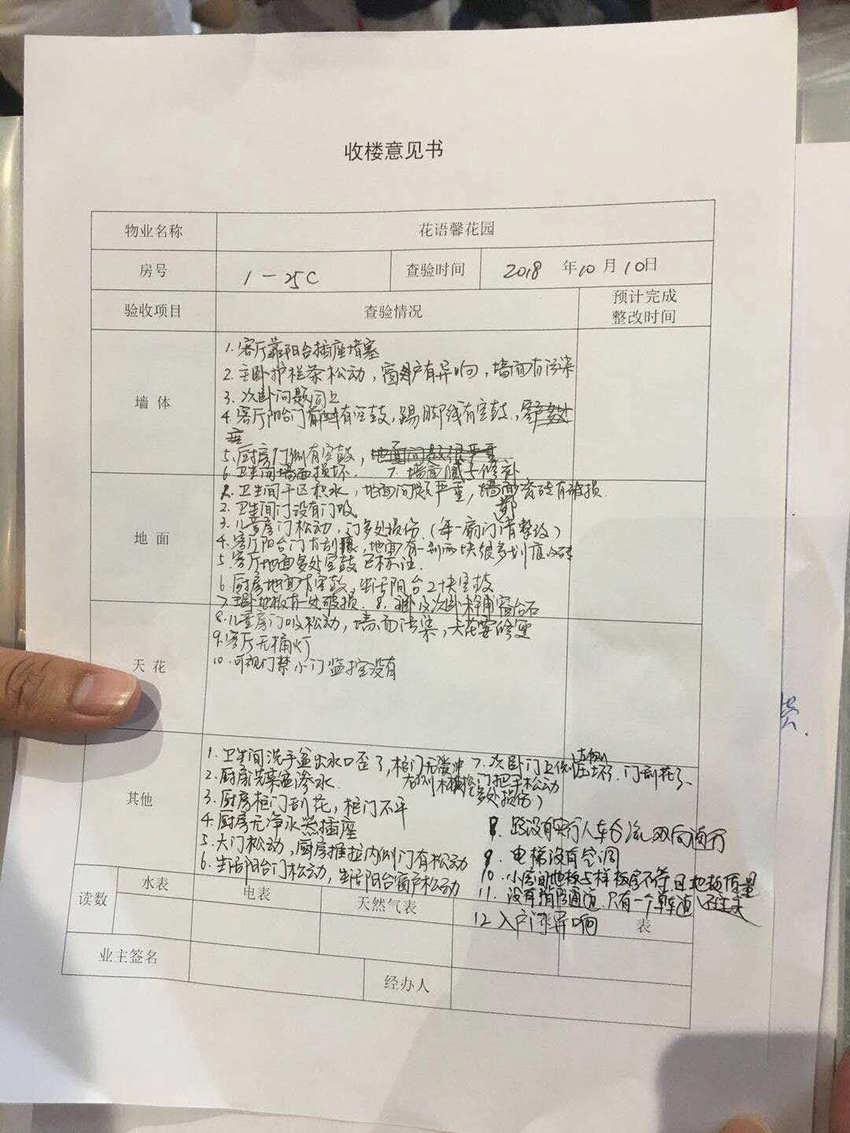 收楼意见书
物业名称 花语馨花园
房号 1-25C 查验时间 2018 年10月10日
验收项目 查验情况 预计完成整改时间
墙体
1.客厅靠阳台插座堵塞
2.主卧护栏条松动,窗户有异响,墙面有污染
3.次卧问题同上
4.客厅阳台门前有空鼓,踢脚线有空鼓,
5.厨房门侧有空鼓,地面问题很严重
6.卫生间墙面损坏. 7.墙面腻子修补
地面
1.卫生间干区积水,地面问题严重,墙面瓷砖有破损
2.卫生间门没有门吸
3.儿童房门松动,门多处损伤(每一扇门有整改)
4.客厅阳台门有刮痕,地面有
5.客厅地面多处空鼓已标注.
6.厨房地面有空鼓,生活阳台2块空鼓
7.主卧地板有一处破损. 8. 次卧 窗台石
天花
8.儿童房门吸松动,墙面污染,天花要修理
9.客厅无桶灯
10.可视门禁小门监控没有
其他
1.卫生间洗手盆出水口歪了,柜门无缓冲
2.厨房洗菜盆渗水.
3.厨房柜门刮花,柜门不平
4.厨房无净水器插座
5.大门松动,厨房推拉内侧门有松动
6.生活阳台门松动,生活阳台窗户松动
7.次卧门上侧 压坏了.门刮花了
门把手松动
多处损伤)
8.路没有实行人车分流双向通行
9.电梯没有空调
10.小房间地板与样板房不符且地板质量
11.没有消防通道,只有一个单车道
12入户门异响
读数 水表 电表 天然气表 表
业主签名 经办人